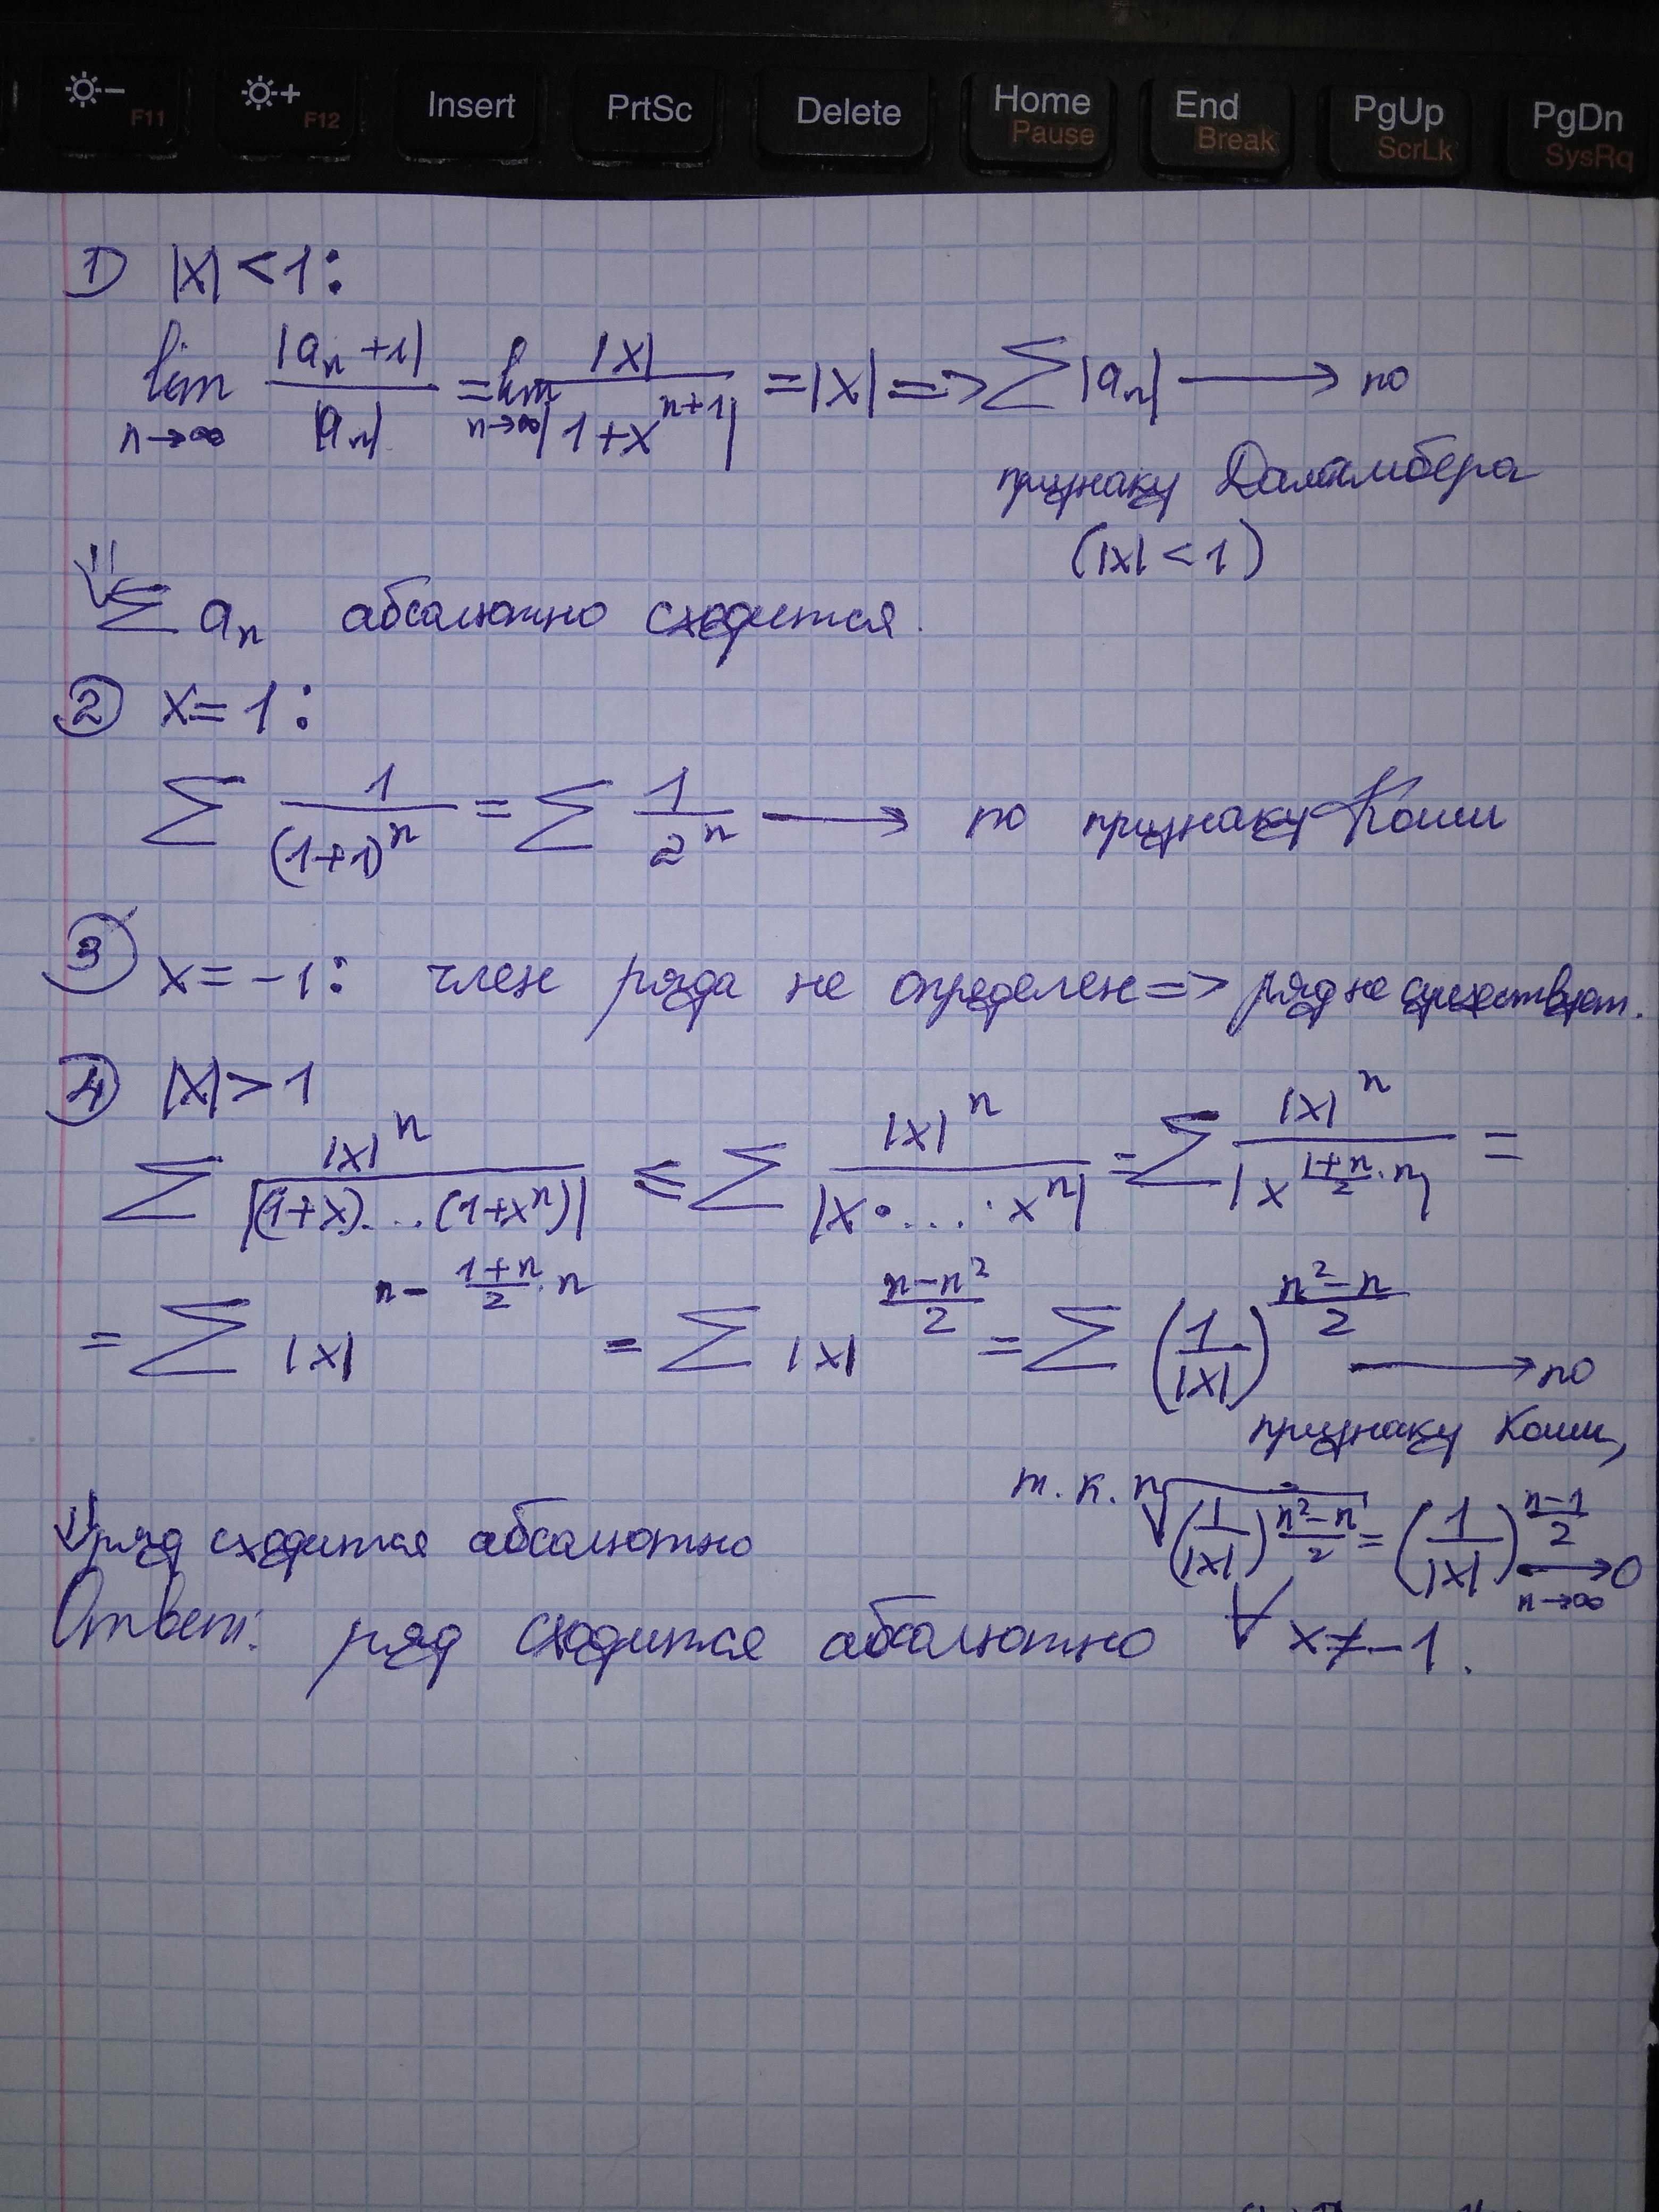 F11 F12 Insert PrtSc Delete Home Pause End Break PgUp ScrLk PgDn SysRq
① |x| < 1:
lim n→∞ |aₙ+1| / |aₙ| = lim n→∞ |x| / |1+x^(n+1)| = |x| => ∑|aₙ| ⟶ по
признаку Даламбера
(|x| < 1)
⇓ ∑ aₙ абсолютно сходится.
② x = 1:
∑ 1/(1+1)ⁿ = ∑ 1/2ⁿ ⟶ по признаку Коши
③ x = -1: член ряда не определен => ряд не существует.
④ |x| > 1
∑ |x|ⁿ / |(1+x)...(1+xⁿ)| ≤ ∑ |x|ⁿ / |x·...·xⁿ| = ∑ |x|ⁿ / |x^((1+n)/2·n)| =
= ∑ |x|^(n - (1+n)/2·n) = ∑ |x|^((n-n²)/2) = ∑ (1/|x|)^((n²-n)/2) ⟶ по
признаку Коши,
т.к. ⁿ√((1/|x|)^((n²-n)/2)) = (1/|x|)^((n-1)/2) ⟶ 0 n→∞
⇓ ряд сходится абсолютно
Ответ: ряд сходится абсолютно ∀ x ≠ -1.